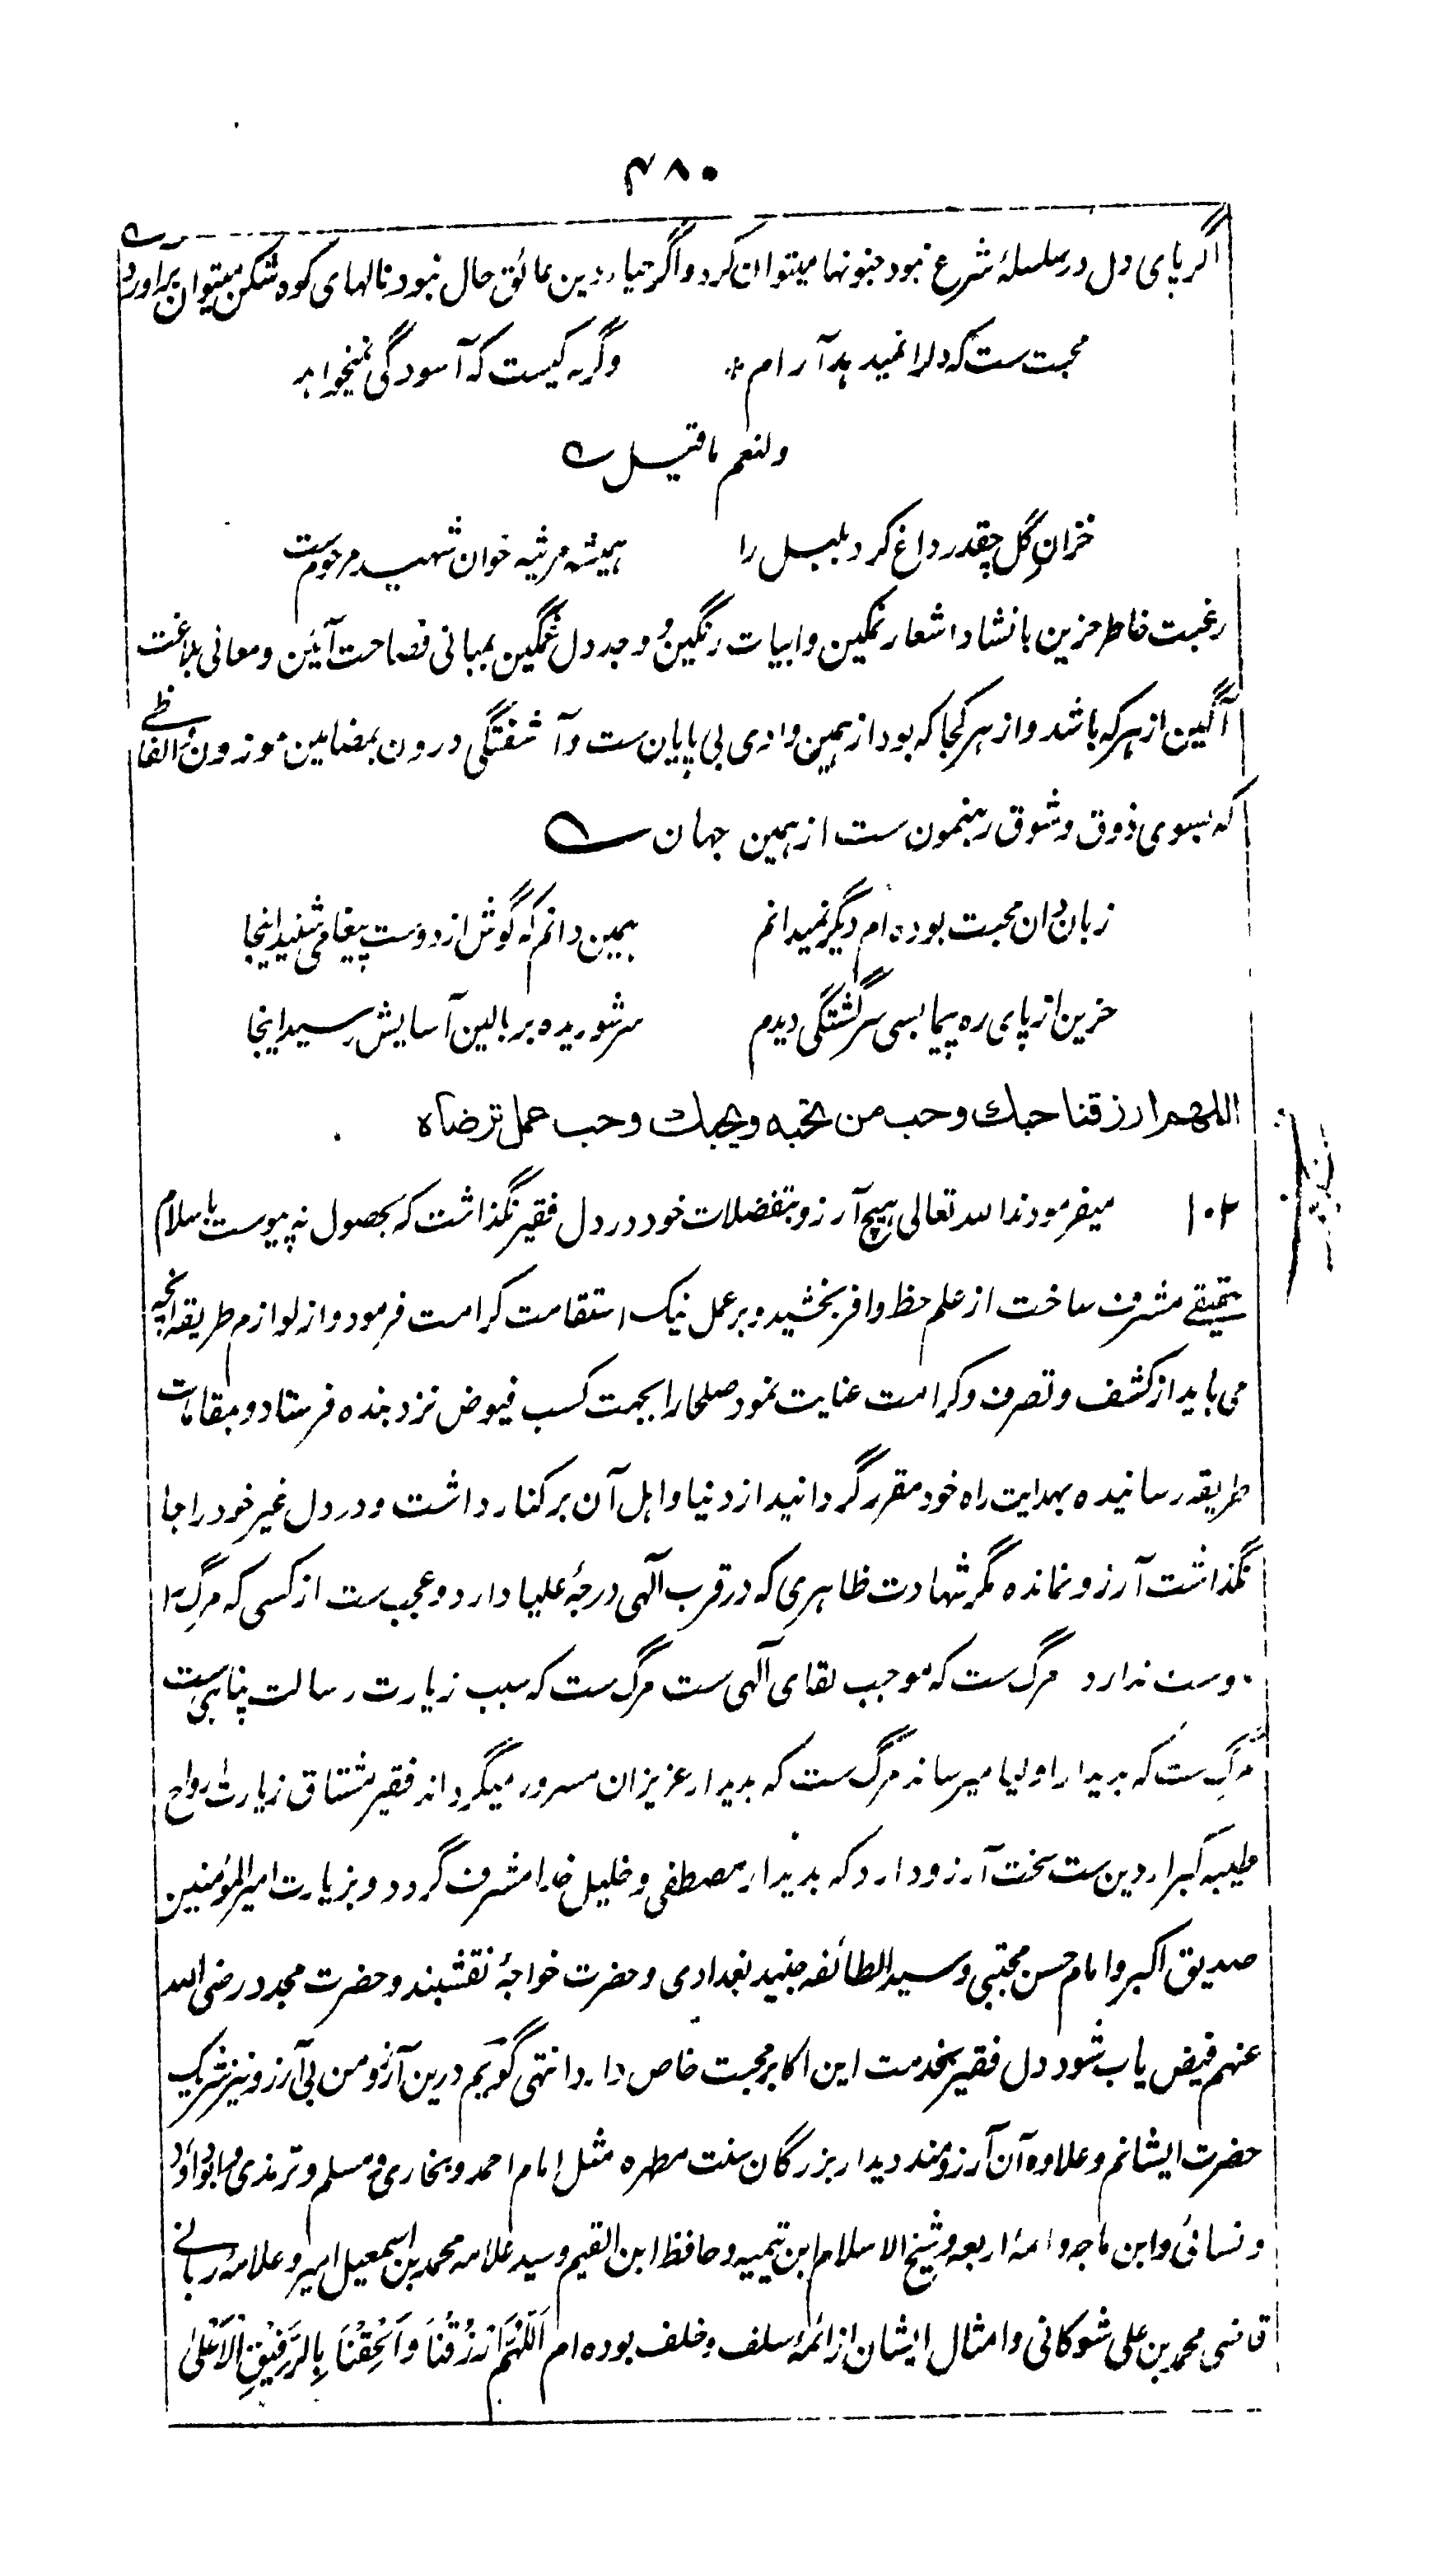 ۴۸۰
اگر پای دل در سلسلهٔ شرع نبود جنونها میتوان کرد و اگر حیا ردین عائق حال نبود نالهای کوه شکن میتوان برآورد
محبت ست که دلرا نمیدہد آرام * وگرنه کیست که آسودگی نمیخواهد
ولنعم ما قیل
خزانِ گل چقدر داغ کرد بلبل را همیشه مرثیه خوان شهید مرحوم ست
رغبت خاطر حزین بانشاد اشعار نمکین و ابیات رنگین و وجد دل غمگین بمبانی فصاحت آئین و معانی بلاغت
آگین از هر که باشد و از هر کجا که بود از همین وادی بی پایان ست و آشفتگی درون بمضامین موزون و الفاظے
که بسوی ذوق و شوق رهنمون ست از همین جهان
زبان دان محبت بوده ام دیگر نمیدانم همین دانم که گوش از دوست پیغامی شنید اینجا
حزین از پای ره پیما بسی سرگشتگی دیدم سر شوریده بر بالین آسایش رسید اینجا
اللهم ارزقنا حبك وحب من تحبه ويحبك وحب عمل ترضاه
۱۰۲ میفرمودند الله تعالی هیچ آرزو بتفضلات خود در دل فقیر نگذاشت که بحصول نه پیوست باسلام
حقیقے مشرف ساخت از علم حظ وافر بخشید و بر عمل نیک استقامت کرامت فرمود و از لوازم طریقه آنچه
می باید از کشف و تصرف و کرامت عنایت نمود صلحا را بجهت کسب فیوض نزد بنده فرستاد و بمقامات
طریقه رسانیده بهدایت راه خود مقرر گردانید از دنیا و اهل آن بر کنار داشت و در دل غیر خود را جا
نگذاشت آرزو نمانده مگر شهادت ظاهری که در قرب آلهی درجهٔ علیا دارد و عجب ست از کسی که مرگ را
دوست ندارد مرگ ست که موجب لقای آلهی ست مرگ ست که سبب زیارت رسالت پناهی ست
مرگ ست که بدیدار اولیا میرساند مرگ ست که بدیدار عزیزان مسرور میگرداند فقیر مشتاق زیارت ارواح
طیبه کبرار دین ست سخت آرزو دارد که بدیدار مصطفی و خلیل خدا مشرف گردد و بزیارت امیر المؤمنین
صدیق اکبر و امام حسن مجتبی و سید الطائفه جنید بغدادی و حضرت خواجهٔ نقشبند و حضرت مجدد رضی الله
عنهم فیض یاب شود دل فقیر بخدمت این اکابر محبت خاص دارد انتهی گویم درین آرزو من بی آرزو نیز شریک
حضرت ایشانم و علاوه آن آرزومند دیدار بزرگان سنت مطهره مثل امام احمد و بخاری و مسلم و ترمذی و ابو داود
و نسائی و ابن ماجه و ائمهٔ اربعه و شیخ الاسلام ابن تیمیه و حافظ ابن القیم و سید علامه محمد بن اسمعیل امیر و علامهٔ ربانے
قاضی محمد بن علی شوکانی و امثال ایشان از ائمهٔ سلف و خلف بوده ام اَللّٰهُمَّ ارْزُقْنَا وَاَلْحِقْنَا بِالرَّفِیْقِ الْاَعْلٰی